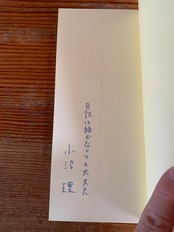 日記は続かなくても大丈夫
小沼 理